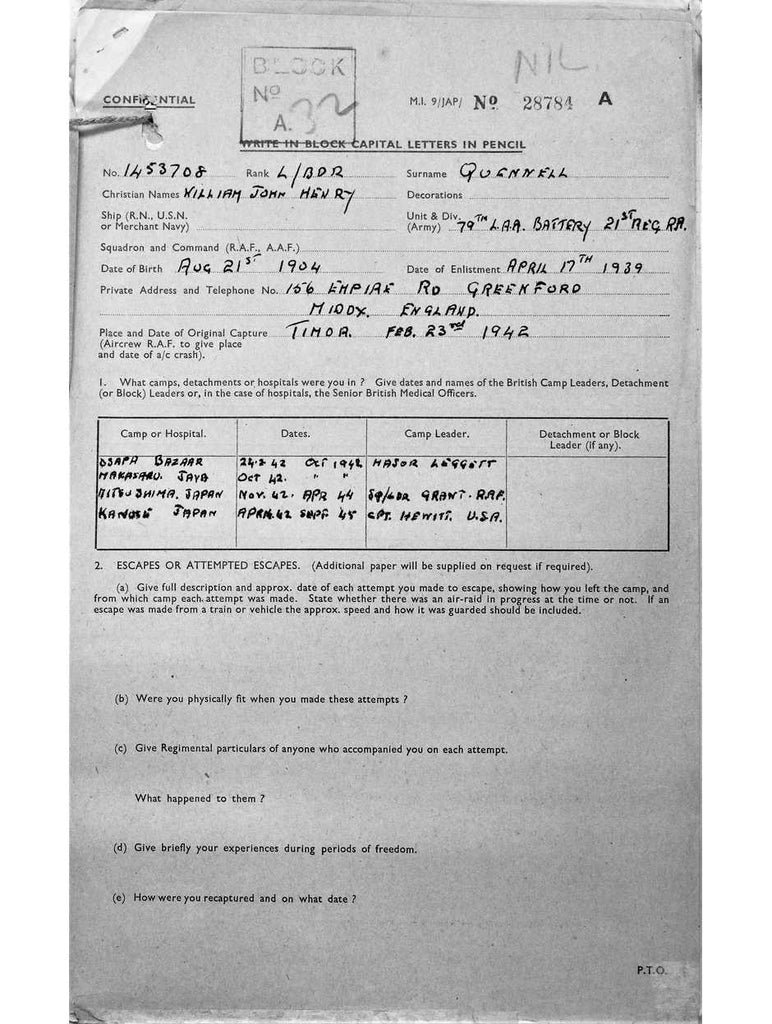 NIL
BLOCK
No
A. 32
CONFIDENTIAL
M.I. 9/JAP/ No 28784 A
WRITE IN BLOCK CAPITAL LETTERS IN PENCIL
No. 1453708 Rank L/BDR Surname QUENNELL
Christian Names WILLIAM JOHN HENRY Decorations
Ship (R.N., U.S.N. or Merchant Navy) Unit & Div. (Army) 79TH L.A.A. BATTERY 21ST REG RA.
Squadron and Command (R.A.F., A.A.F.)
Date of Birth AUG 21ST 1904 Date of Enlistment APRIL 17TH 1939
Private Address and Telephone No. 156 EMPIRE RD GREENFORD
MIDDX. ENGLAND.
Place and Date of Original Capture TIMOR. FEB. 23rd 1942
(Aircrew R.A.F. to give place
and date of a/c crash).
1. What camps, detachments or hospitals were you in ? Give dates and names of the British Camp Leaders, Detachment
(or Block) Leaders or, in the case of hospitals, the Senior British Medical Officers.
Camp or Hospital. Dates. Camp Leader. Detachment or Block
Leader (if any).
BAZAAR 24.2.42 OCT 1942 MAJOR LEGGETT
JAVA OCT 42. " "
MITSUSHIMA. JAPAN NOV. 42. APR 44 SQ/LDR GRANT. R.A.F.
JAPAN APRIL 42 SEPT 45 CPT. HEWITT. U.S.A.
2. ESCAPES OR ATTEMPTED ESCAPES. (Additional paper will be supplied on request if required).
(a) Give full description and approx. date of each attempt you made to escape, showing how you left the camp, and
from which camp each attempt was made. State whether there was an air-raid in progress at the time or not. If an
escape was made from a train or vehicle the approx. speed and how it was guarded should be included.
(b) Were you physically fit when you made these attempts ?
(c) Give Regimental particulars of anyone who accompanied you on each attempt.
What happened to them ?
(d) Give briefly your experiences during periods of freedom.
(e) How were you recaptured and on what date ?
P.T.O.